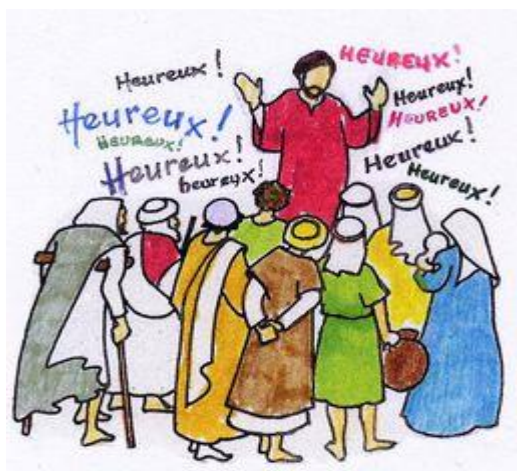 Heureux !
Heureux !
HEUREUX !
Heureux !
heureux !
HEUREUX !
Heureux !
HEUREUX !
Heureux !
Heureux !